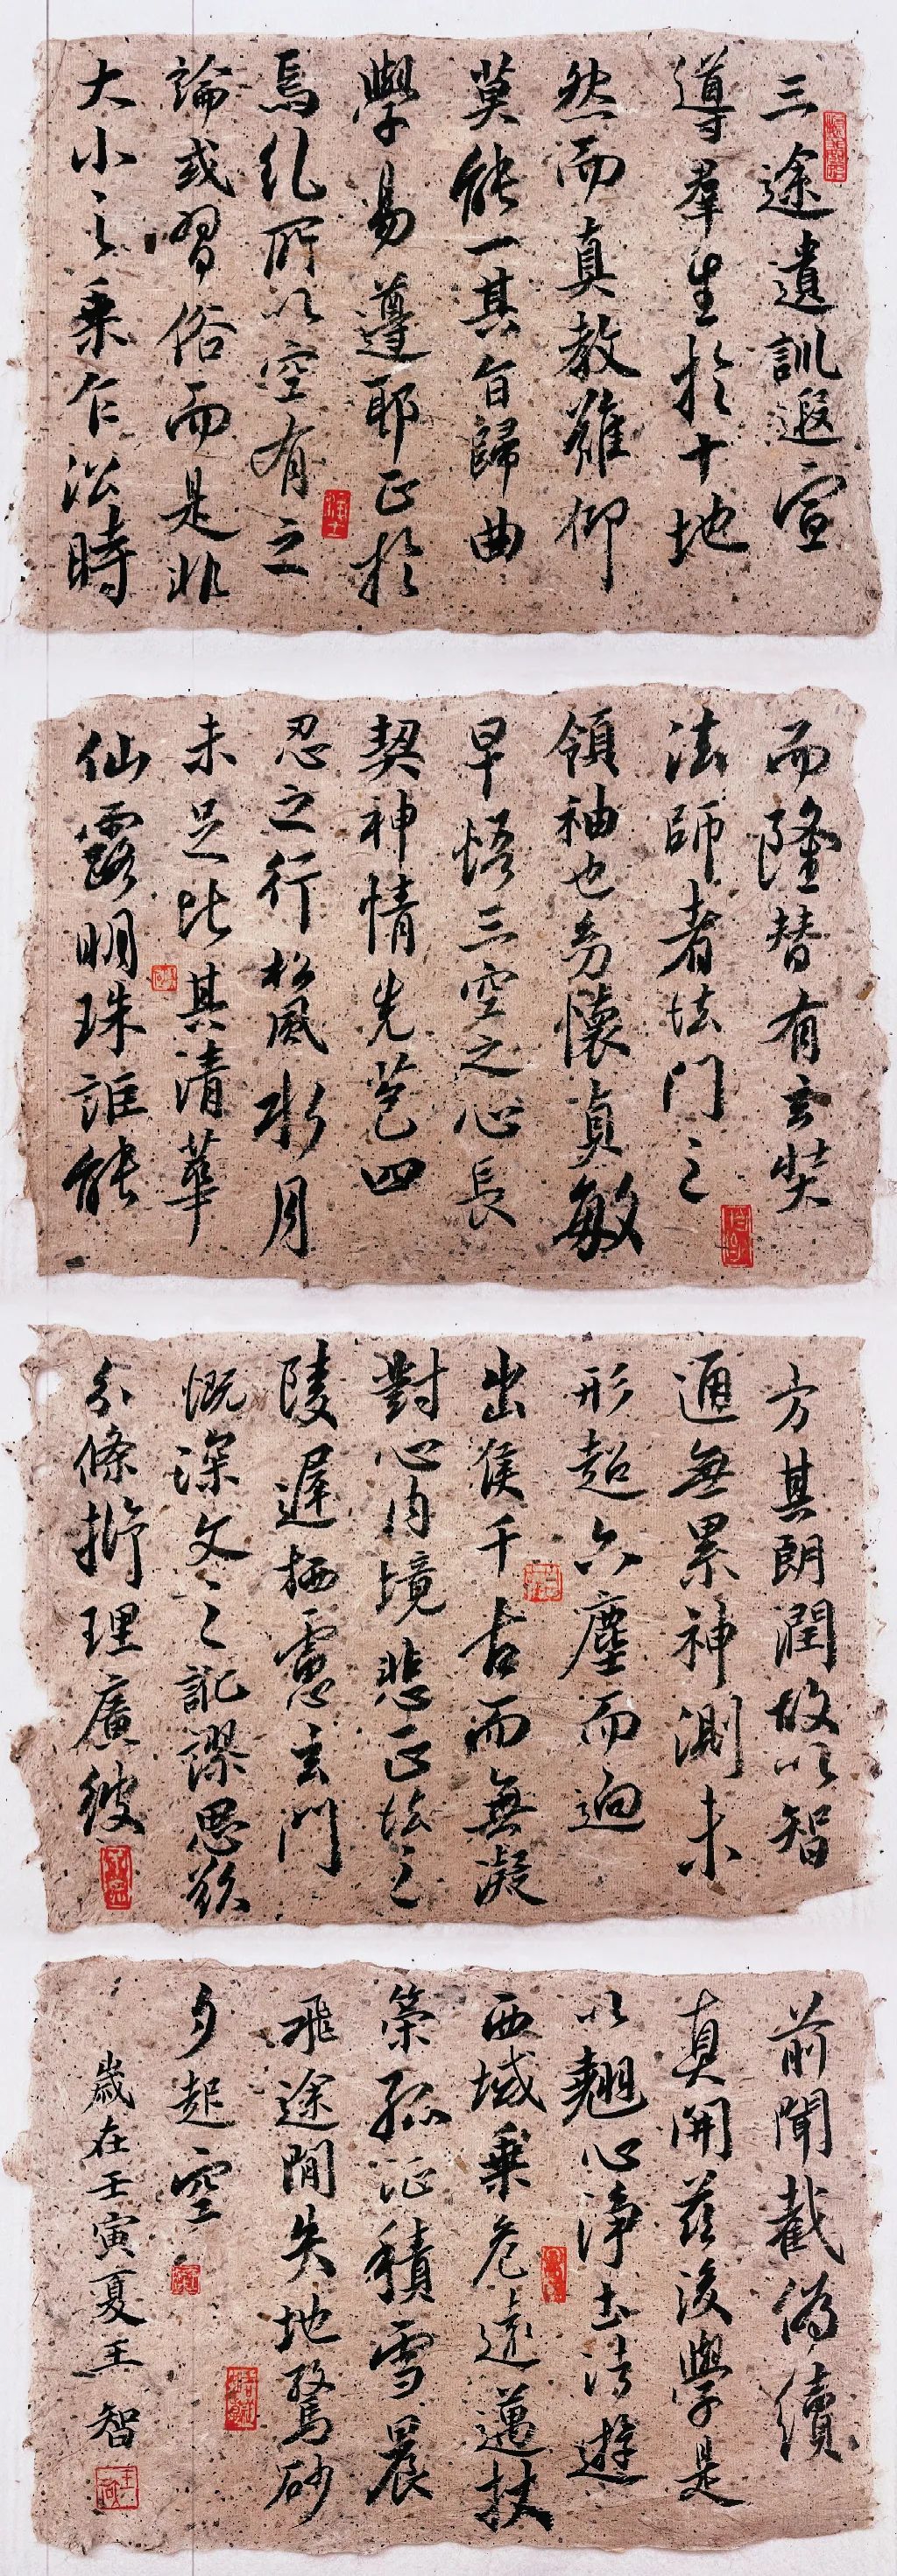 三途遺訓遐宣
導羣生於十地
然而真教難仰
莫能一其旨歸曲
學易遵耶正於
焉紏所以空有之
論或習俗而是非
大小之乘乍沿時
而隆替有玄奘
法師者法門之
領袖也幼懷貞敏
早悟三空之心長
契神情先苞四
忍之行松風水月
未足比其清華
仙露明珠詎能
方其朗潤故以智
通無累神測未
形超六塵而迥
出復千古而無凝
對心內境悲正法之
陵遲栖慮玄門
慨深文之訛謬思欲
分條析理廣彼
前聞截偽續
真開茲後學是
以翹心淨土法遊
西域乘危遠邁杖
策孤征積雪晨
飛途間失地驚砂
夕起空
歲在壬寅夏王智